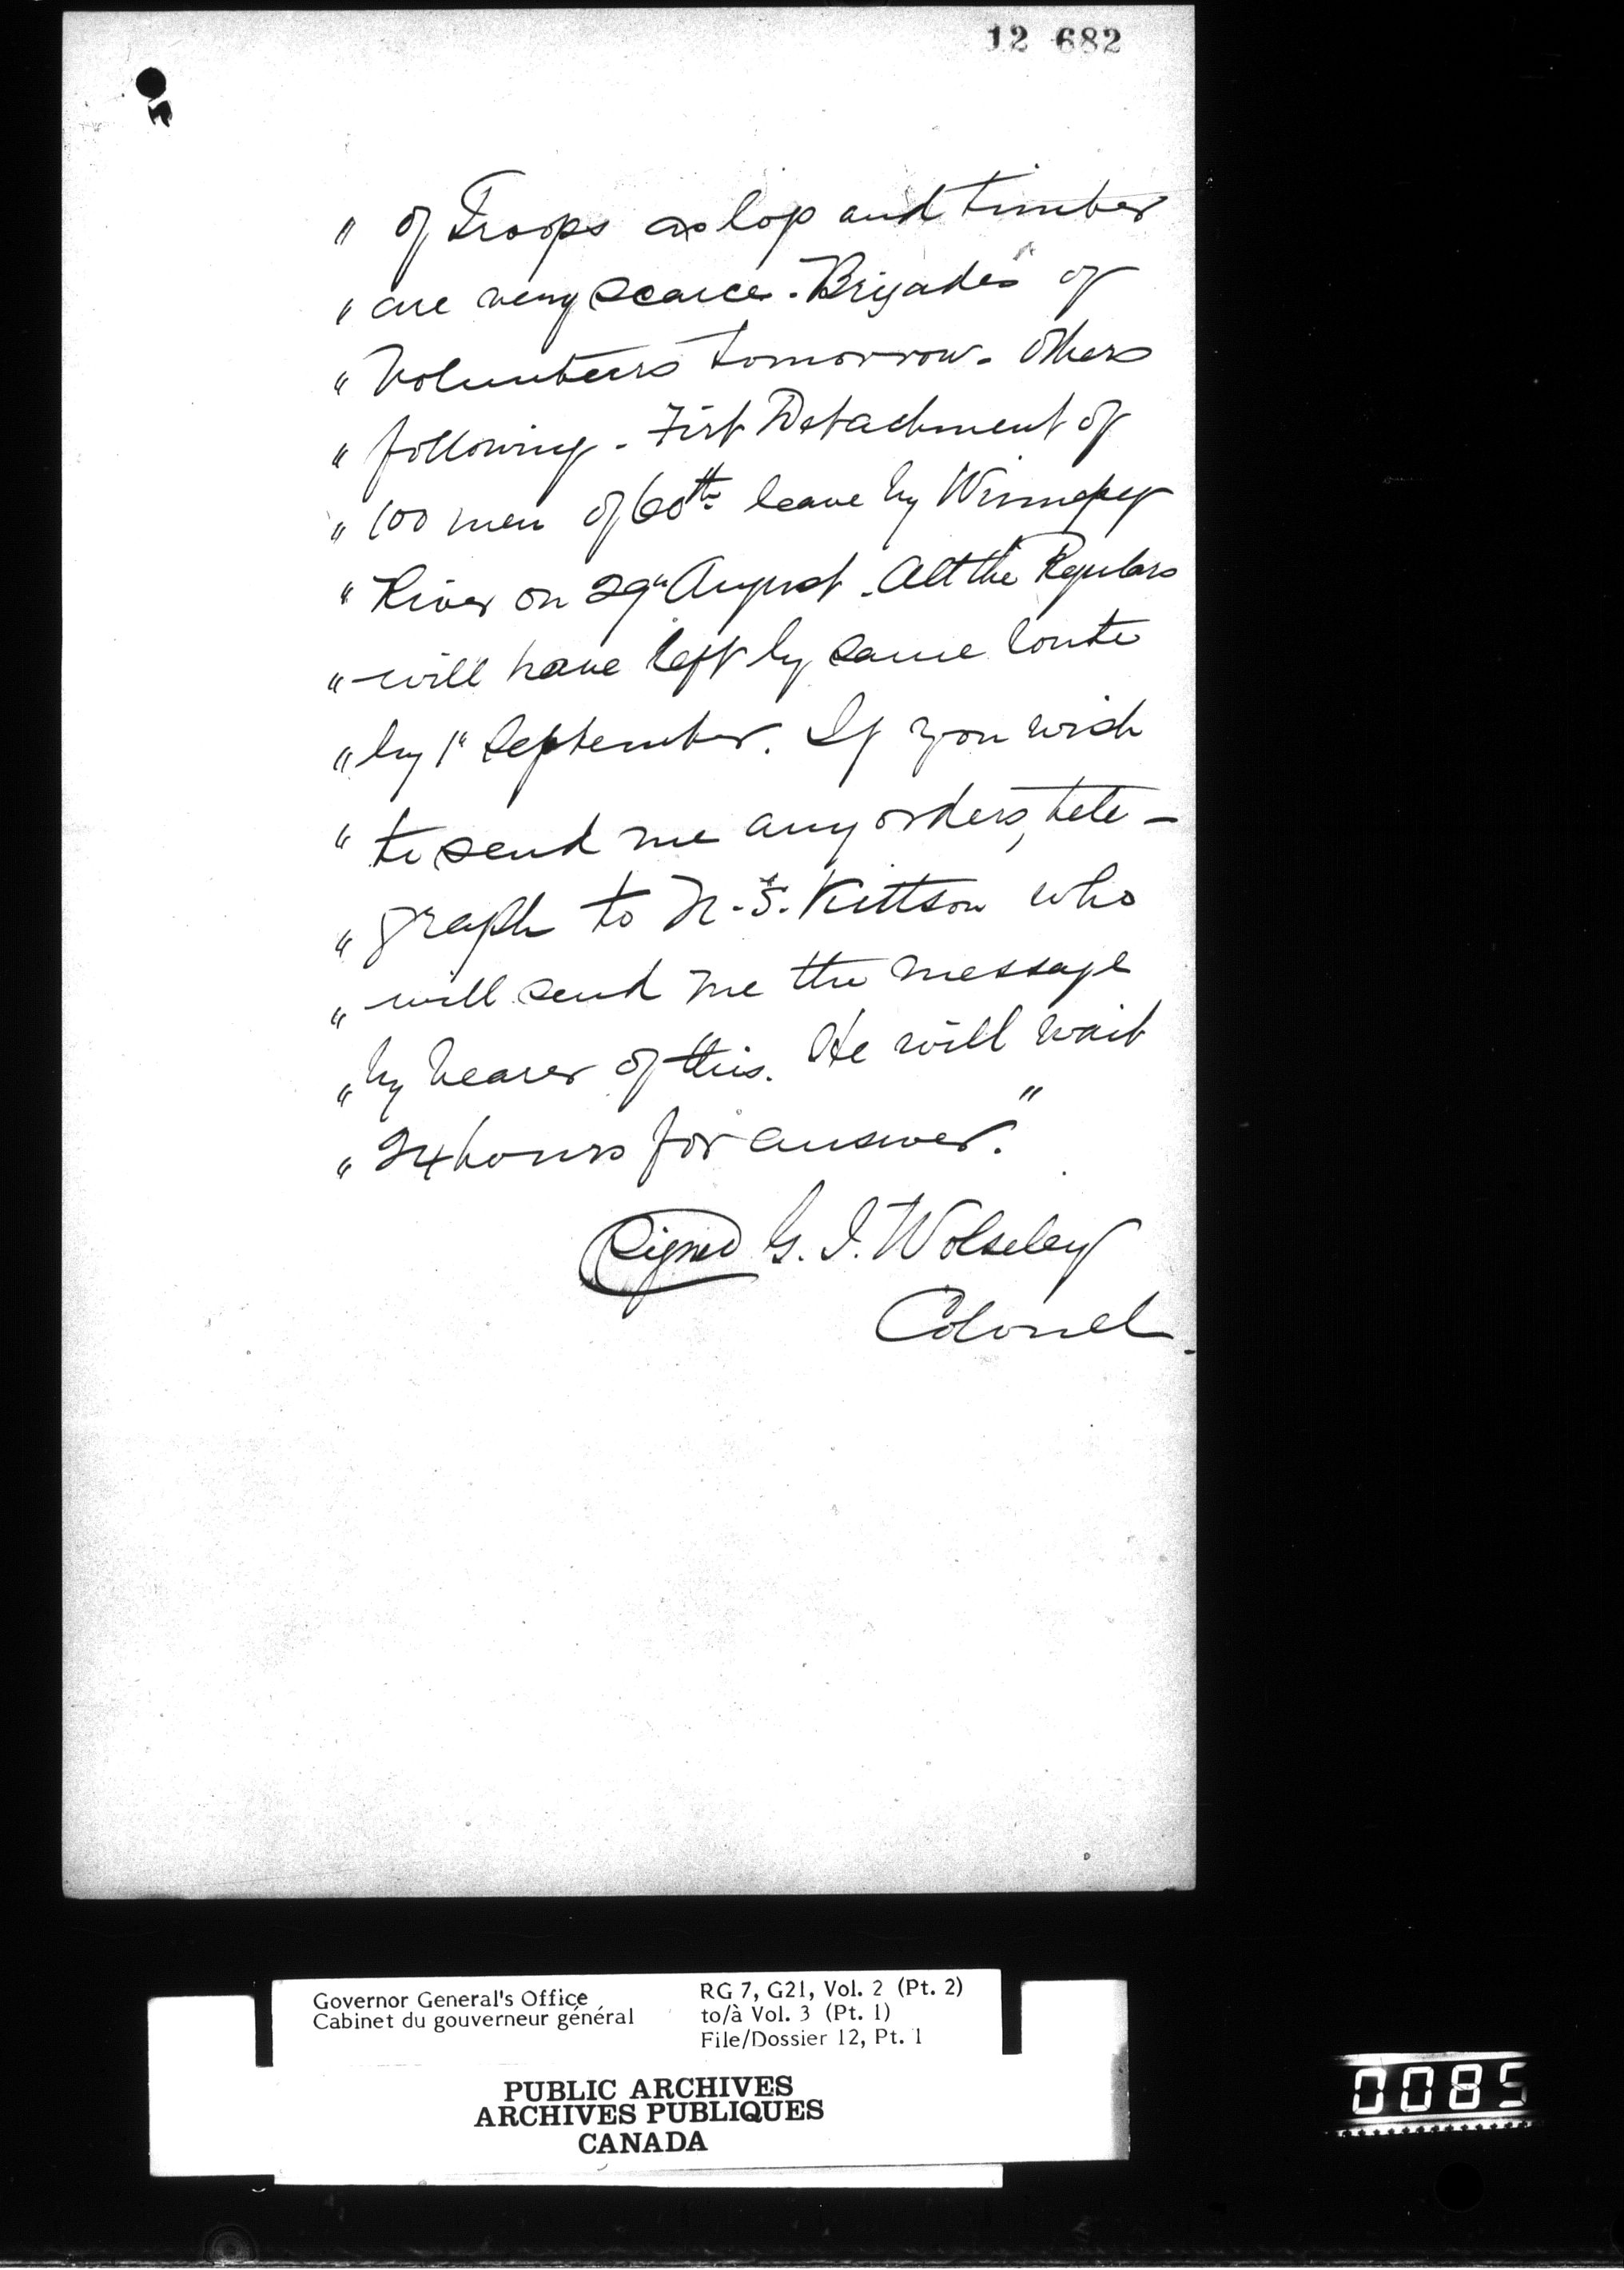 12 682
" of Troops as logs and timber
" are very scarce. Brigades of
" Volunteers tomorrow. Others
" following. First Detachment of
" 100 men of 60th leave by Winnipeg
" River on 29th August. All the Regulars
" will have left by same route
" by 1st September. If you wish
" to send me any orders, tele-
" graph to N. S. Kittson who
" will send me the message
" by bearer of this. He will wait
" 24 hours for answer."
Signed G. J. Wolseley
Colonel
Governor General's Office
Cabinet du gouverneur général
RG 7, G21, Vol. 2 (Pt. 2)
to/à Vol. 3 (Pt. 1)
File/Dossier 12, Pt. 1
PUBLIC ARCHIVES
ARCHIVES PUBLIQUES
CANADA
0085